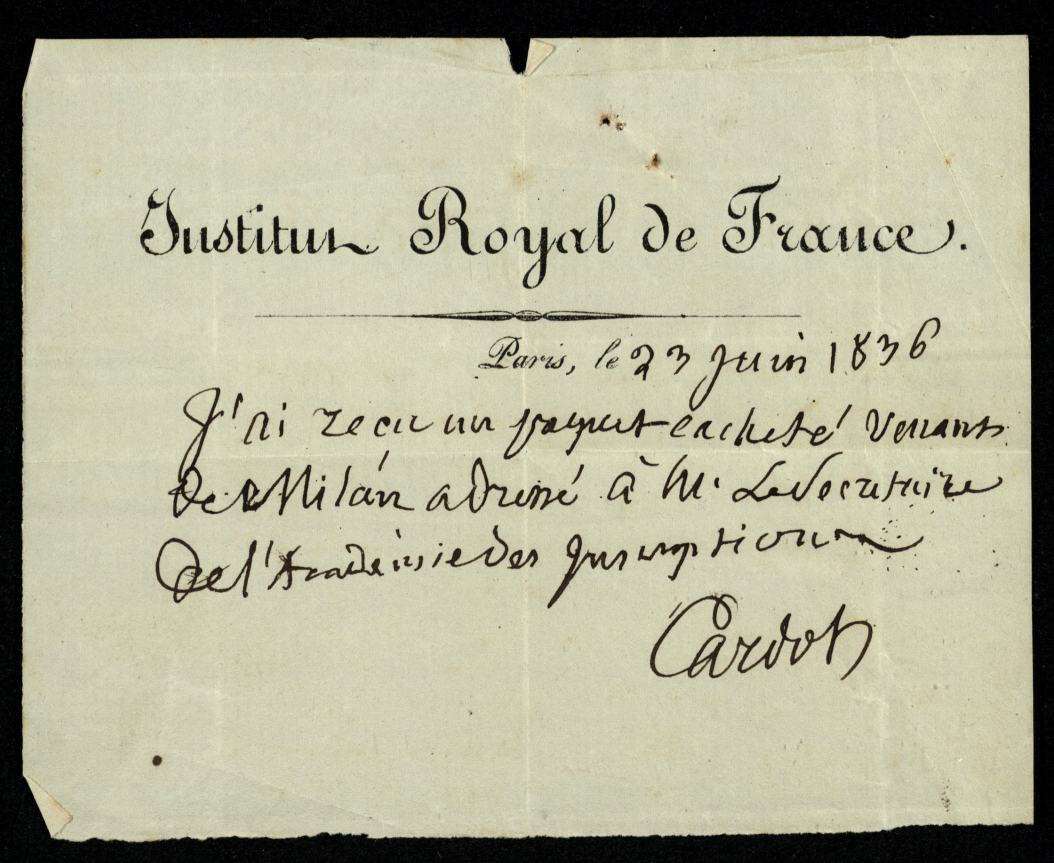 Institut Royal de France.
Paris, le 23 juin 1836
J'ai reçu un paquet cacheté venant
de Milan adressé à Mr. Le Secretaire
de l'Académie des Inscriptions
Cardot